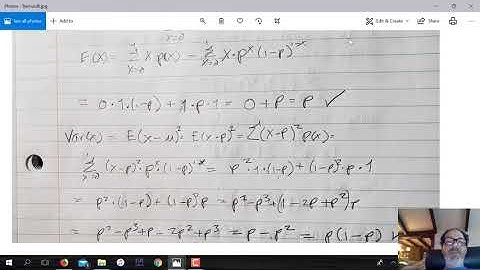 Photos - Bernoulli.jpg
See all photos
Edit & Create
Share
x=0
E(X) = Σ x p(x) = Σ x·p^x (1-p)^1-x
x=0 x=0
= 0·1·(1-p) + 1·p·1 = 0 + p = p ✓
Var(x) = E(x-μ)² = E(x-p)² = Σ(x-p)² p(x) =
Σ (x-p)²·p^x·(1-p)^1-x = p²·1·(1-p) + (1-p)²·p·1
x=0
= p²·(1-p) + (1-p)²p = p²-p³+(1-2p+p²)p
= p²-p³+p-2p²+p³ = p-p² = p(1-p)